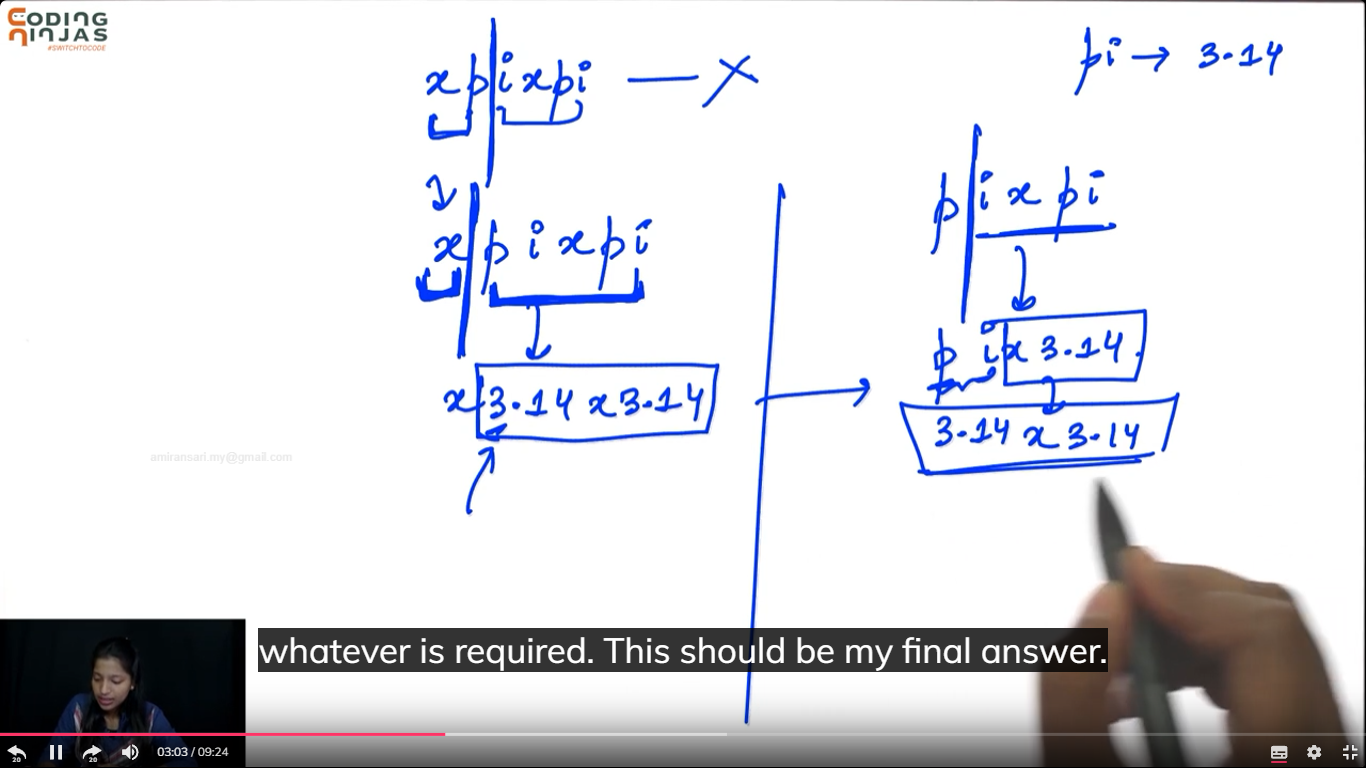 CODING
NINJAS
#SWITCHTOCODE
xpixpi — X
pi → 3.14
x pixpi
x 3.14x3.14
pixpi
pix3.14
3.14x3.14
amiransari.my@gmail.com
whatever is required. This should be my final answer.
20
20
03:03 / 09:24